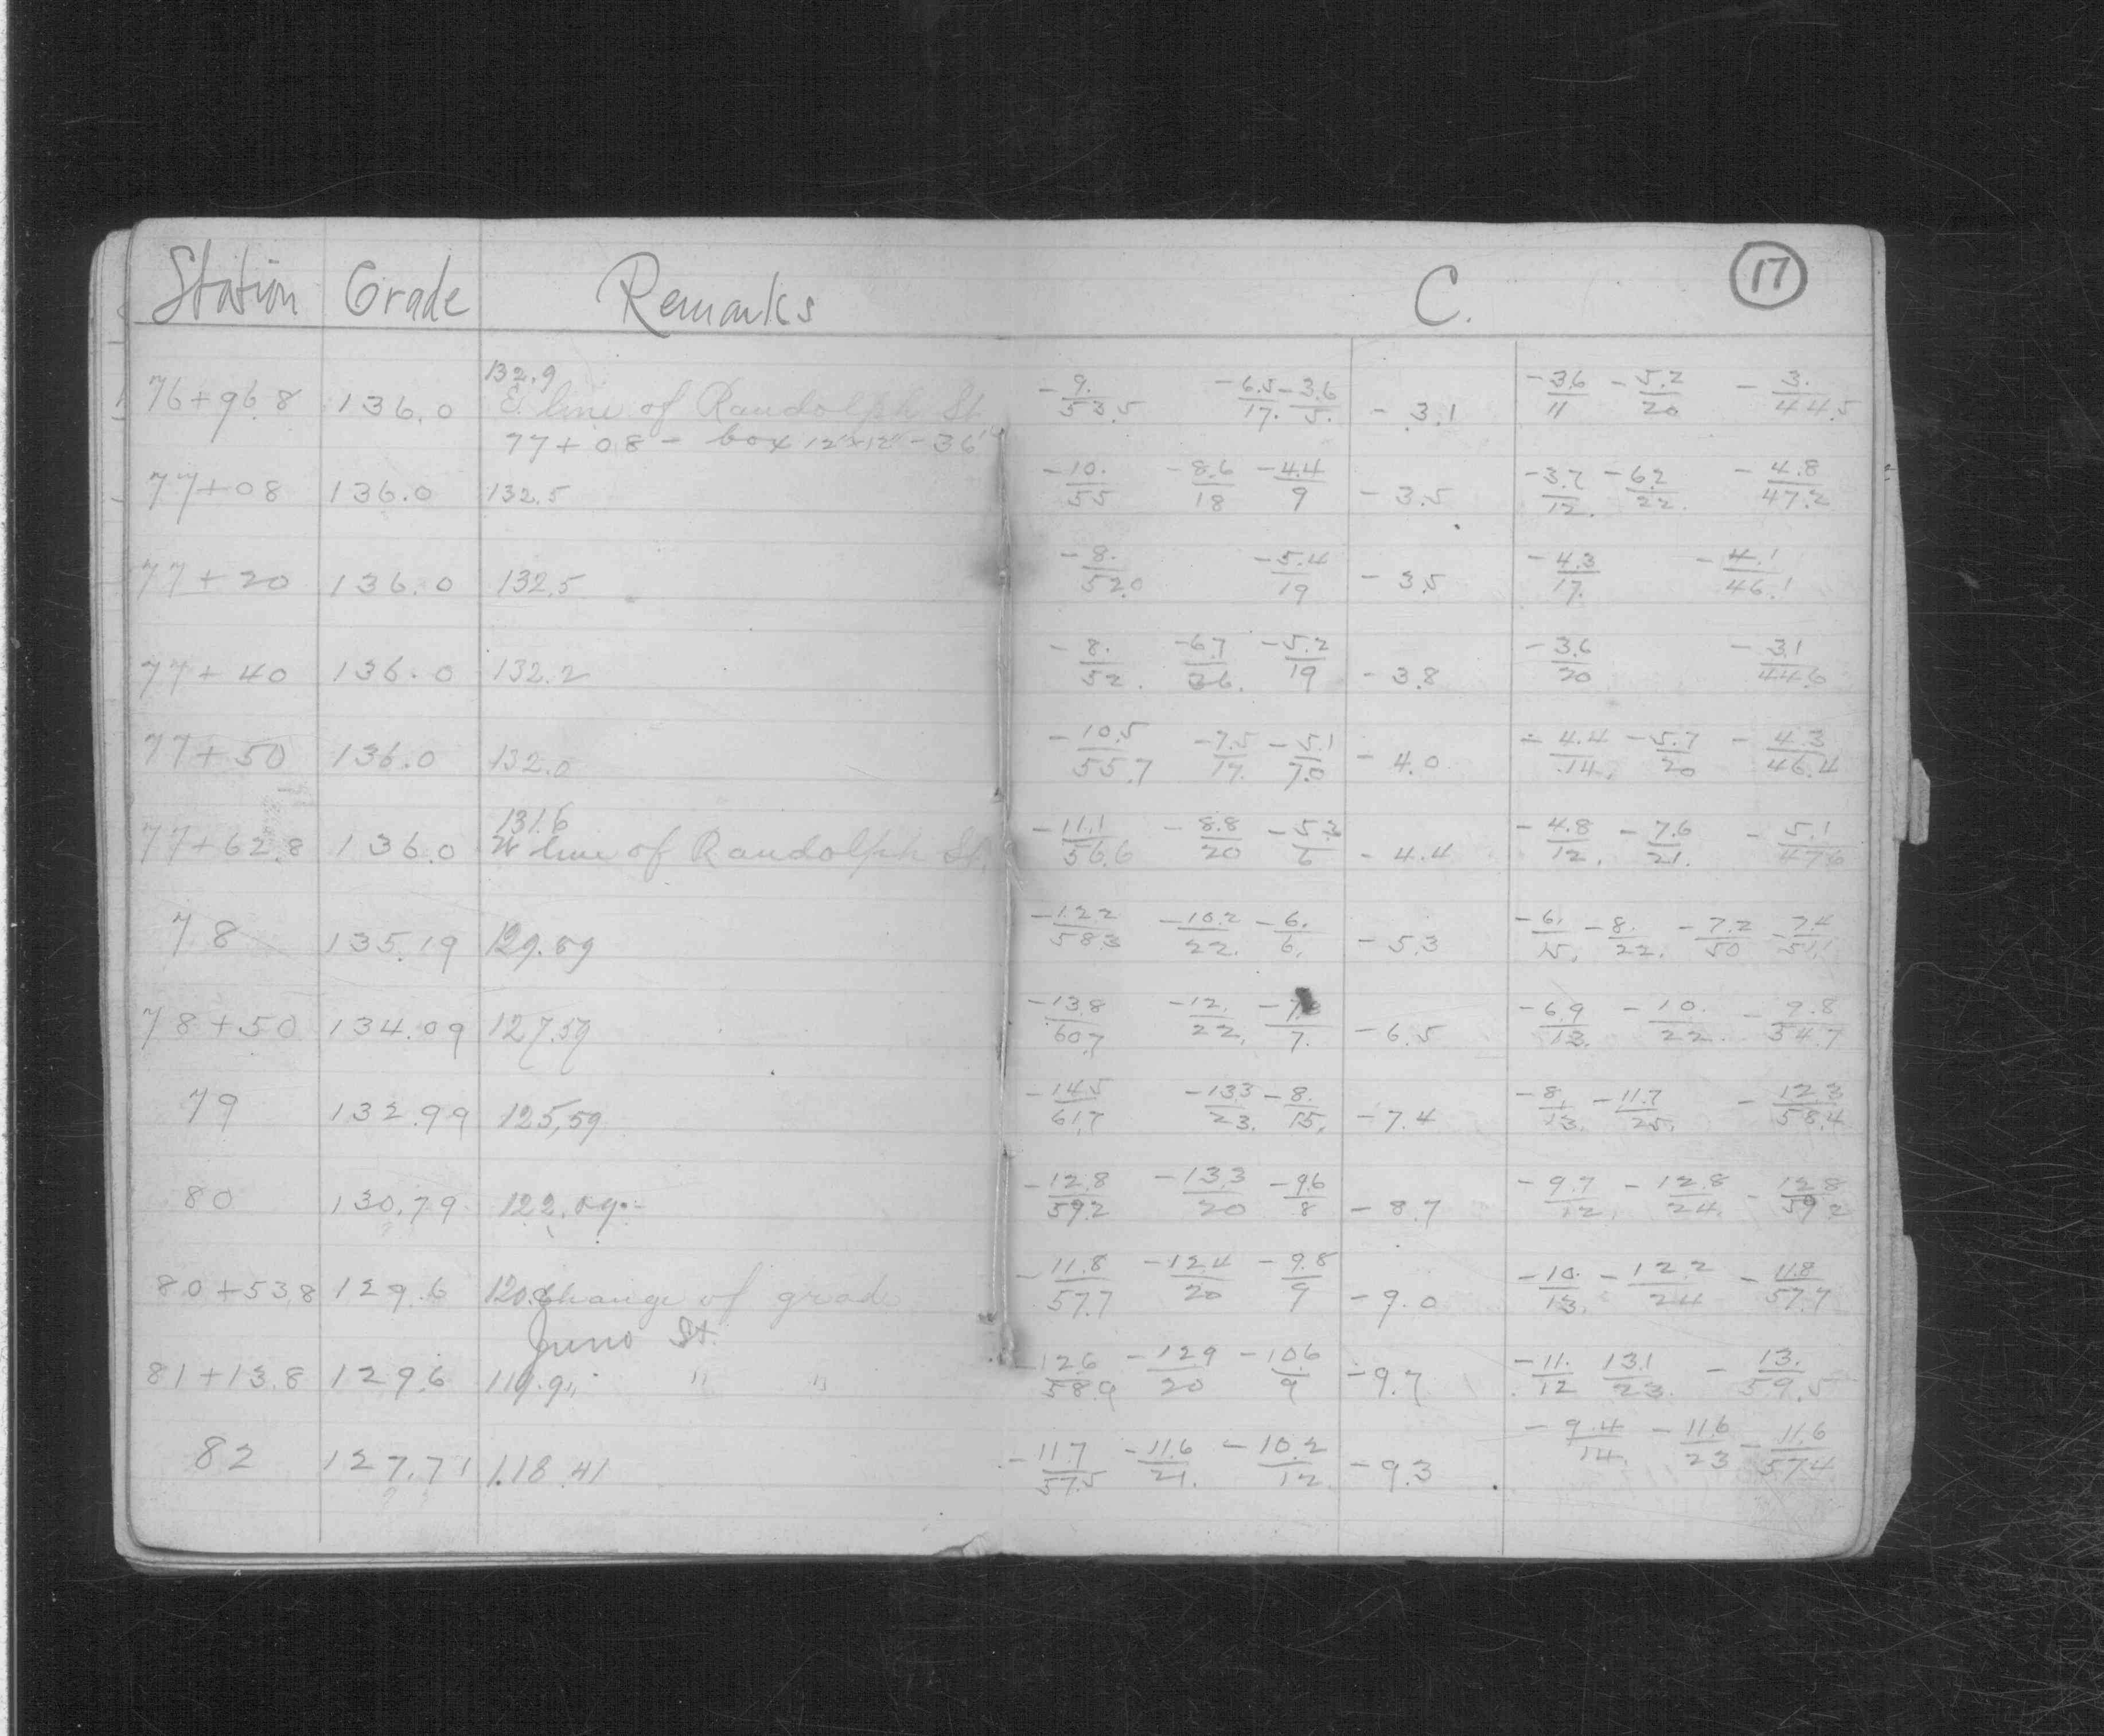 Station Grade Remarks C. 17
132.9
76+96.8 136.0 E. line of Randolph St. -9./53.5 -6.5/17. -3.6/5. -3.1 -3.6/11 -5.2/20 -3./44.5
77+08 - box 12"x12" - 36'
77+08 136.0 132.5 -10./55 -8.6/18 -4.4/9 -3.5 -3.7/12. -6.2/22. -4.8/47.2
77+20 136.0 132.5 -8./52.0 -5.4/19 -3.5 -4.3/17. -4.1/46.1
77+40 136.0 132.2 -8./52. -6.7/36. -5.2/19 -3.8 -3.6/20 -3.1/44.6
77+50 136.0 132.0 -10.5/55.7 -7.5/17. -5.1/7.0 -4.0 -4.4/14. -5.7/20 -4.3/46.4
131.6
77+62.8 136.0 W line of Randolph St. -11.1/56.6 -8.8/20 /6 -4.4 -4.8/12. -7.6/21. -5.1/47.6
78 135.19 -12.2/58.3 -10.2/22. -6./6. -5.3 -6./15. -8./22. -7.2/50 -7.4/51.1
78+50 134.09 127.59 -13.8/60.7 -12./22. /7. -6.5 -6.9/13. -10./22. -9.8/54.7
79 132.99 125.59 -14.5/61.7 -13.3/23. -8./15. -7.4 -8./13. -11.7/25. -12.3/58.4
80 130.79 122.09 -12.8/59.2 -13.3/20 -9.6/8 -8.7 -9.7/12. -12.8/24. -12.8/59.2
80+53.8 129.6 120.6 change of grade -11.8/57.7 -12.4/20 -9.8/9 -9.0 -10./13. -12.2/24 -11.8/57.7
Juno St.
81+13.8 129.6 119.9 " " " -12.6/58.9 -12.9/20 -10.6/9 -9.7 -11./12 13.1/23. -13./59.5
82 127.71 118.41 -11.7/57.5 -11.6/21. -10.2/12. -9.3 -9.4/14. -11.6/23 -11.6/57.4